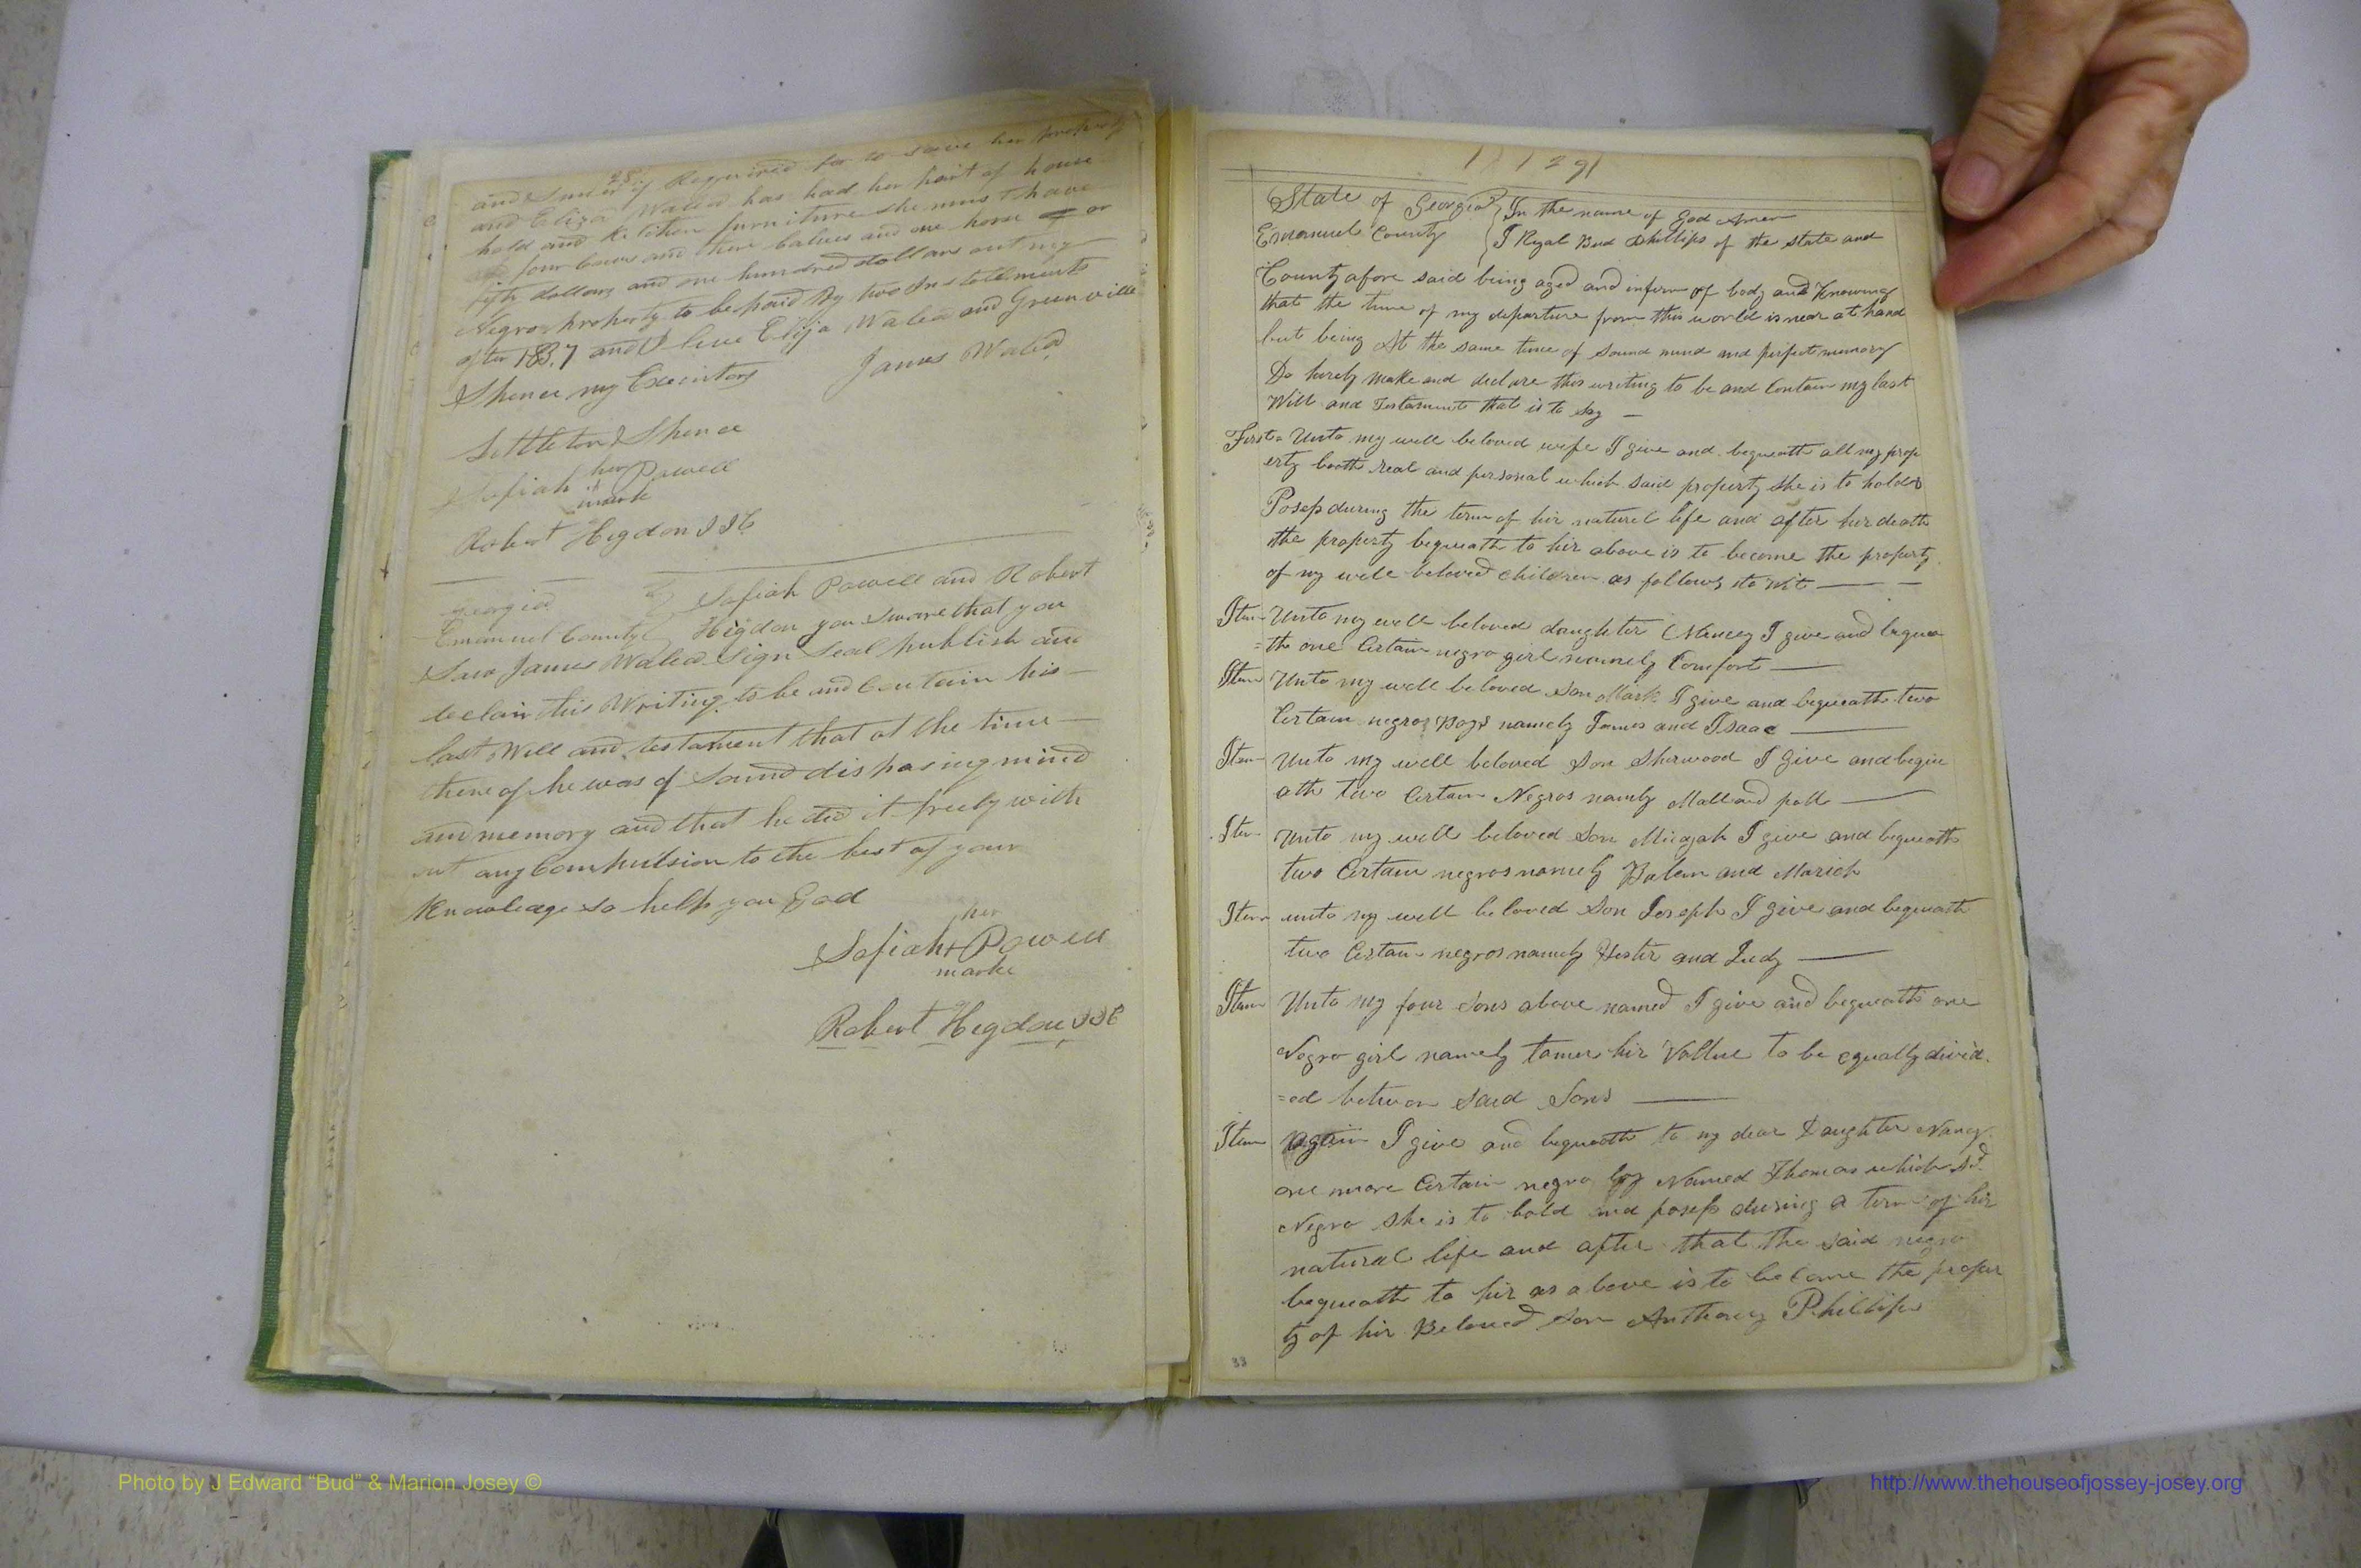 28
and Eliza Walea has had her part of house
hold and Kitchen furniture she must have
four Cows and three Calves and one horse or
fifty dollars and one hundred dollars out my
Negro property to be paid by two Instollments
after 1837 and I leve Elija Walea and Greenville
Shenee my Executors James Walea
Littleton Shenee
her
Sofiah Powell
mark
Robert Higdon JIC
Georgia Sofiah Powell and Robert
Emanuel County Higdon you Swore that you
Saw James Walea Sign Seal publish and
declair this Writing to be and Contain his
last Will and testament that at the time
there of he was of Sound disposing mind
and memory and that he did it freely with
out any Compulsion to the best of your
Knowledge so help you God
her
Sofiah + Powell
marke
Robert Higdon JIC
29
State of Georgia In the name of God Amen
Emanuel County I Ryal Bud Phillips of the state and
County afore said being aged and infirm of body and Knowing
that the time of my departure from this world is near at hand
but being At the same time of Sound mind and perfect memory
Do herely make and declare this writing to be and Contain my last
Will and Testament that is to say
First Unto my well beloved wife I give and bequeath all my prop
erty booth real and personal which said property she is to hold &
Posess during the term of hir naturel life and after hir death
the property bequeath to hir above is to become the property
of my well beloved children as follows to wit
Item Unto my well beloved daughter Nancy I give and bequea
=th one Certain negro girl namely Comfort
Item Unto my well beloved Son Mark I give and bequeath two
Certain negros Boys namely James and Isaac
Item Unto my well beloved Son Sherwood I give and beque
ath two Certain Negros namely Moll and poll
Item Unto my well beloved Son Micajah I give and bequeath
two Certain negros namely Balem and Mariah
Item unto my well beloved Son Joseph I give and bequeath
two Certain negros namely Hester and Judy
Item Unto my four Sons above named I give and bequeath one
Negro girl namely tamer hir Vallue to be equally divid
=ed between said Sons
Item Again I give and bequeath to my dear Daughter Nancy
one more Certain negro boy Named Thomas which Sd
Negro she is to hold and posess during a term of hir
natural life and after that the said negro
bequeath to hir as above is to become the proper
ty of hir Beloved Son Anthony Phillips
33
Photo by J Edward “Bud” & Marion Josey ©
http://www.thehouseofjossey-josey.org